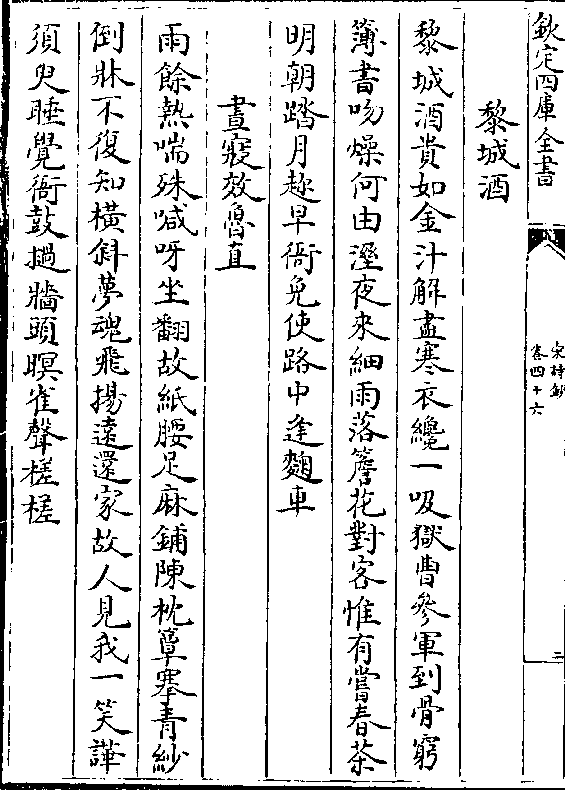 欽定四庫全書
宋詩鈔
卷四十六
二
黎城酒
黎城酒貴如金汁解盡寒衣纔一吸獄曹參軍到骨窮
簿書吻燥何由溼夜來細雨落簷花對客惟有嘗春茶
明朝踏月趂早衙免使路中逢麴車
晝寢效魯直
雨餘熱喘殊喊呀坐翻故紙腰足麻鋪陳枕簟搴青紗
倒牀不復知橫斜夢魂飛揚遠還家故人見我一笑譁
須臾睡覺衙鼓撾牆頭瞑雀聲槎槎